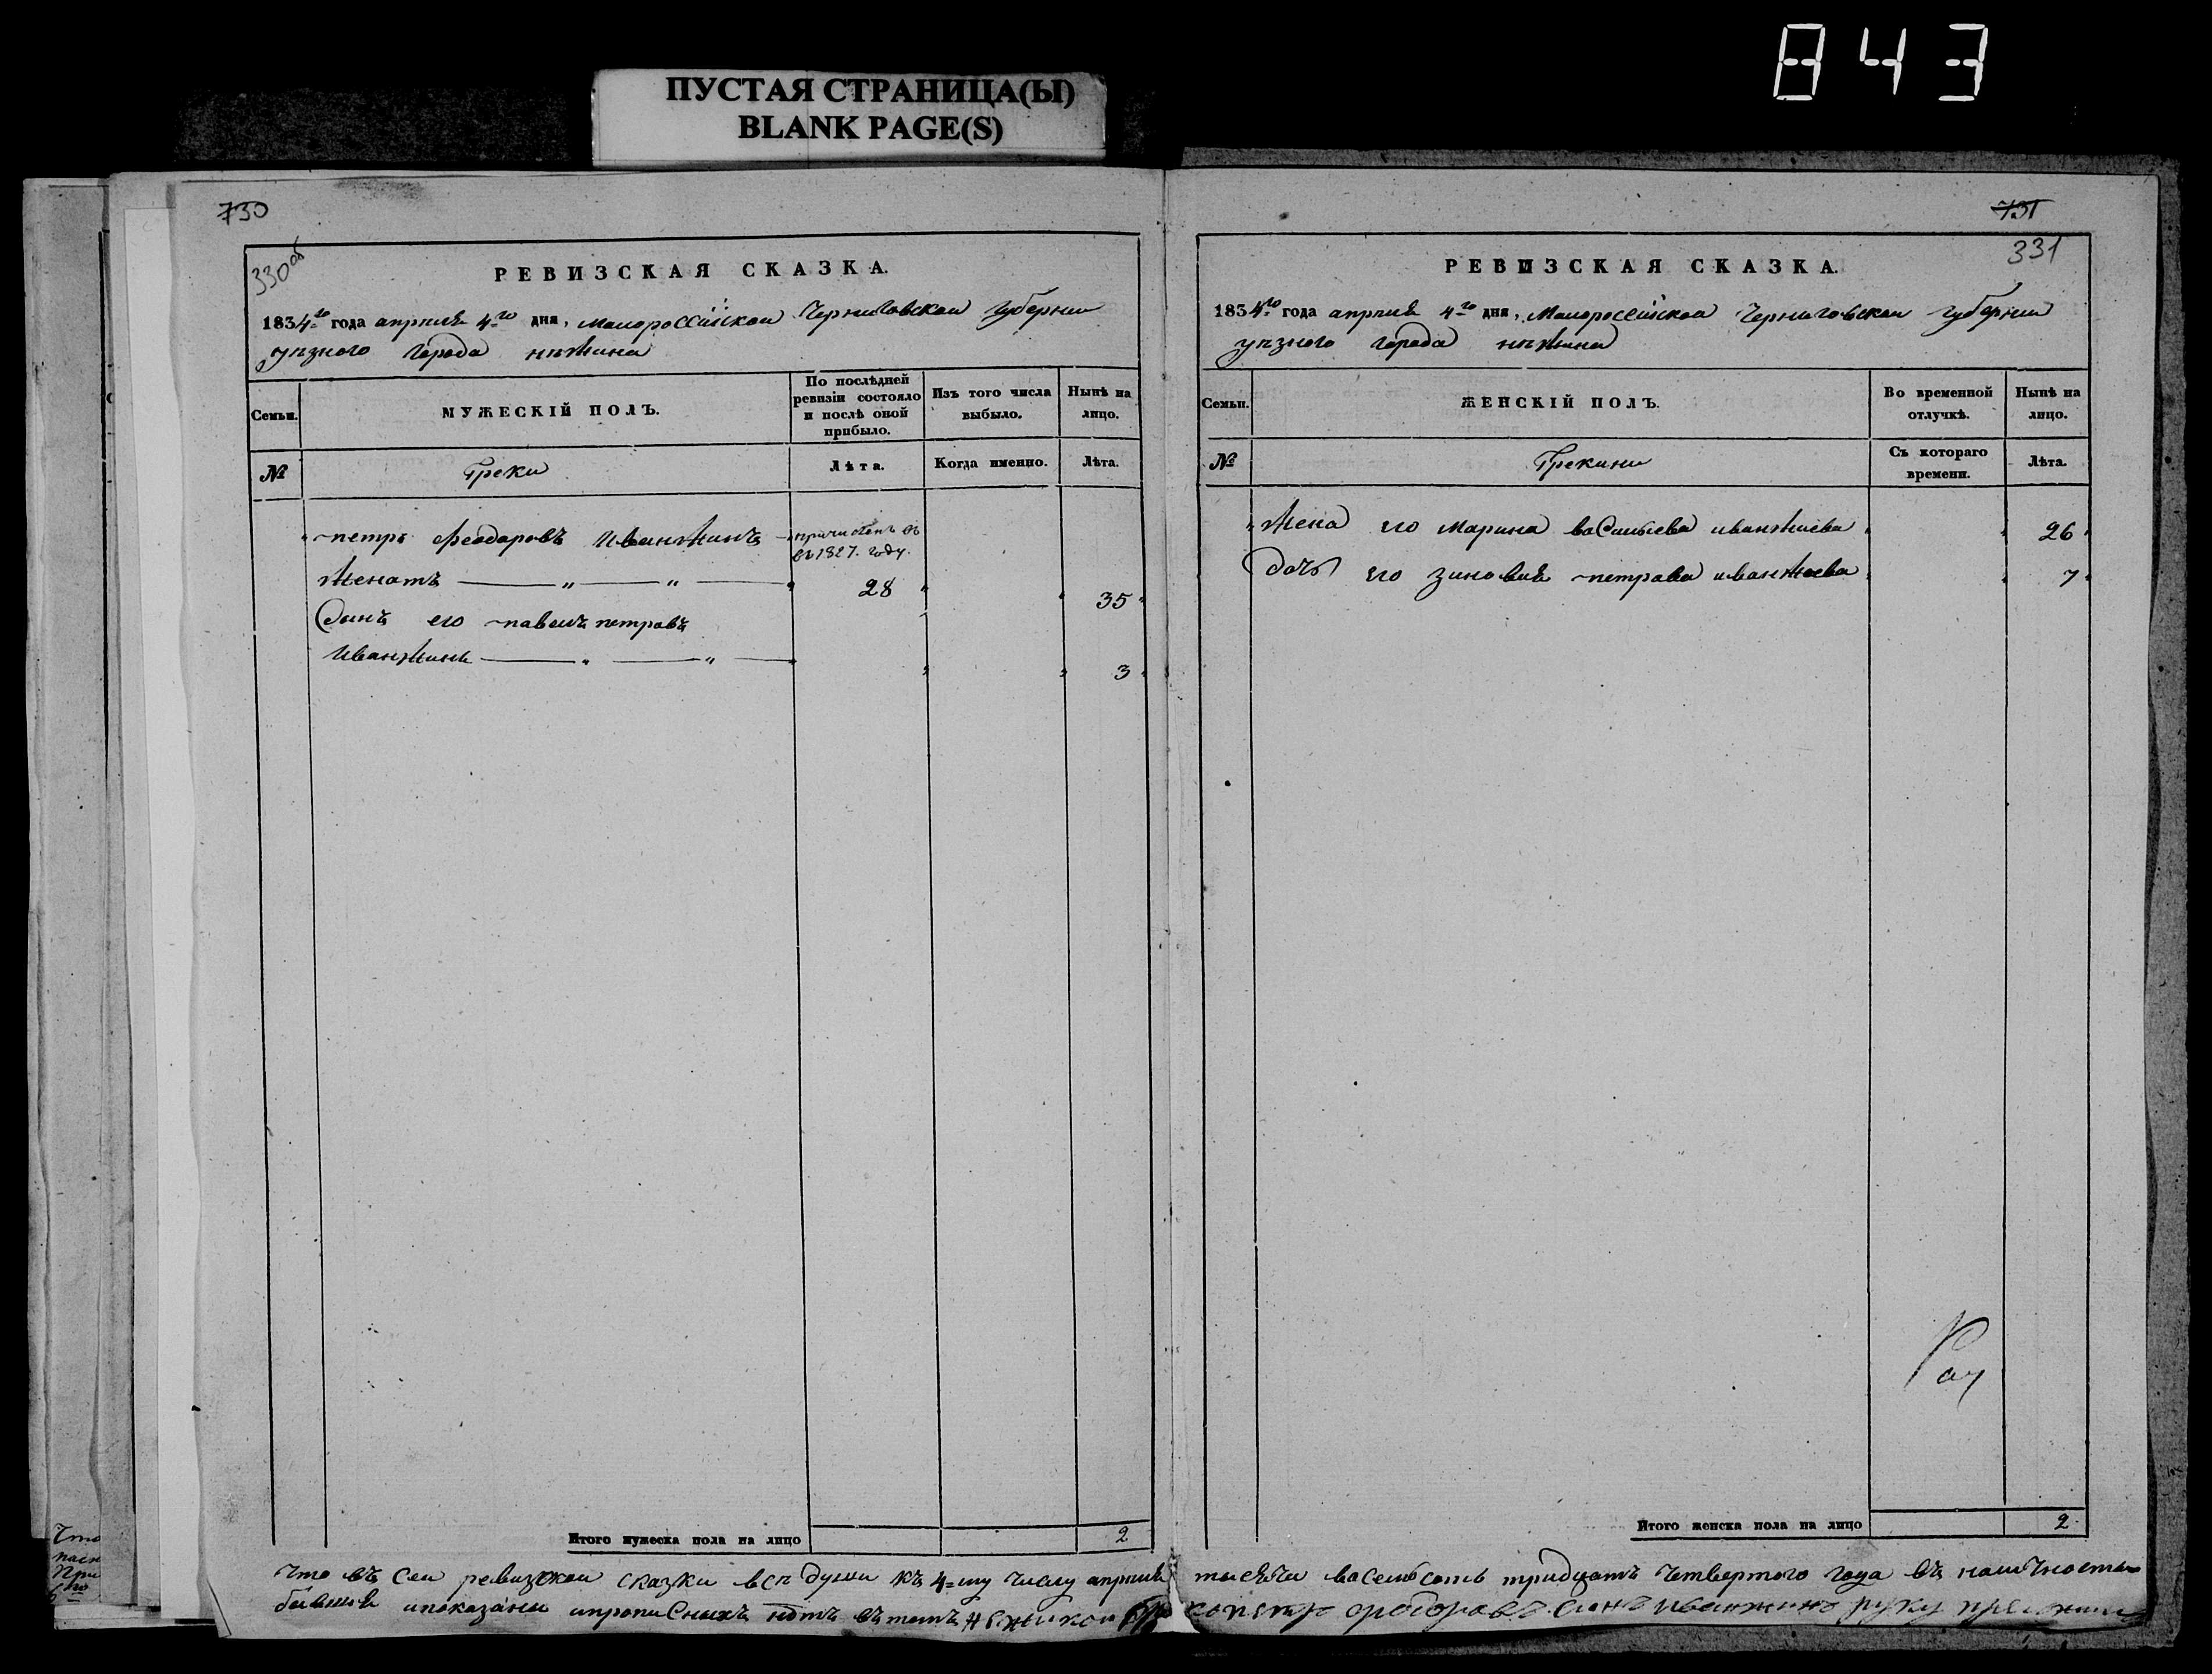 843
ПУСТАЯ СТРАНИЦА(Ы)
BLANK PAGE(S)
730
330 об
РЕВИЗСКАЯ СКАЗКА.
1834го года апреля 4го дня, малороссийской Черниговской Губернии
уѣзного города нѣжина
Семьи.
МУЖЕСКІЙ ПОЛЪ.
По послѣдней ревизіи состояло и послѣ оной прибыло.
Изъ того числа выбыло.
Нынѣ на лицо.
№
Греки
Лѣта.
Когда именно.
Лѣта.
петръ феодоровъ Иванжинъ причисленъ въ
въ 1827. году.
Женатъ — „ — „ — 28 35
Сынъ его павелъ петровъ
Иванжинъ — „ — „ — 3
Итого мужеска пола на лицо 2
731
331
РЕВИЗСКАЯ СКАЗКА.
1834го года апреля 4го дня, Малороссийской Черниговской Губернии
уѣзного города нѣжина
Семьи.
ЖЕНСКІЙ ПОЛЪ.
Во временной отлучкѣ.
Нынѣ на лицо.
№
Грекини
Съ котораго времени.
Лѣта.
Жена его Марина васильева иванжиева 26
Дочь его зиновия петрова иванжиева 7
Итого женска пола на лицо 2.
Что въ сей ревизской сказки всѣ души къ 4=му числу апреля тысяча восемьсотъ тридцать Четвертого года въ наличности
бывшие и показаны и прописныхъ нѣтъ въ томъ нежинской петръ федоровъ синъ иванжинъ руку приложилъ